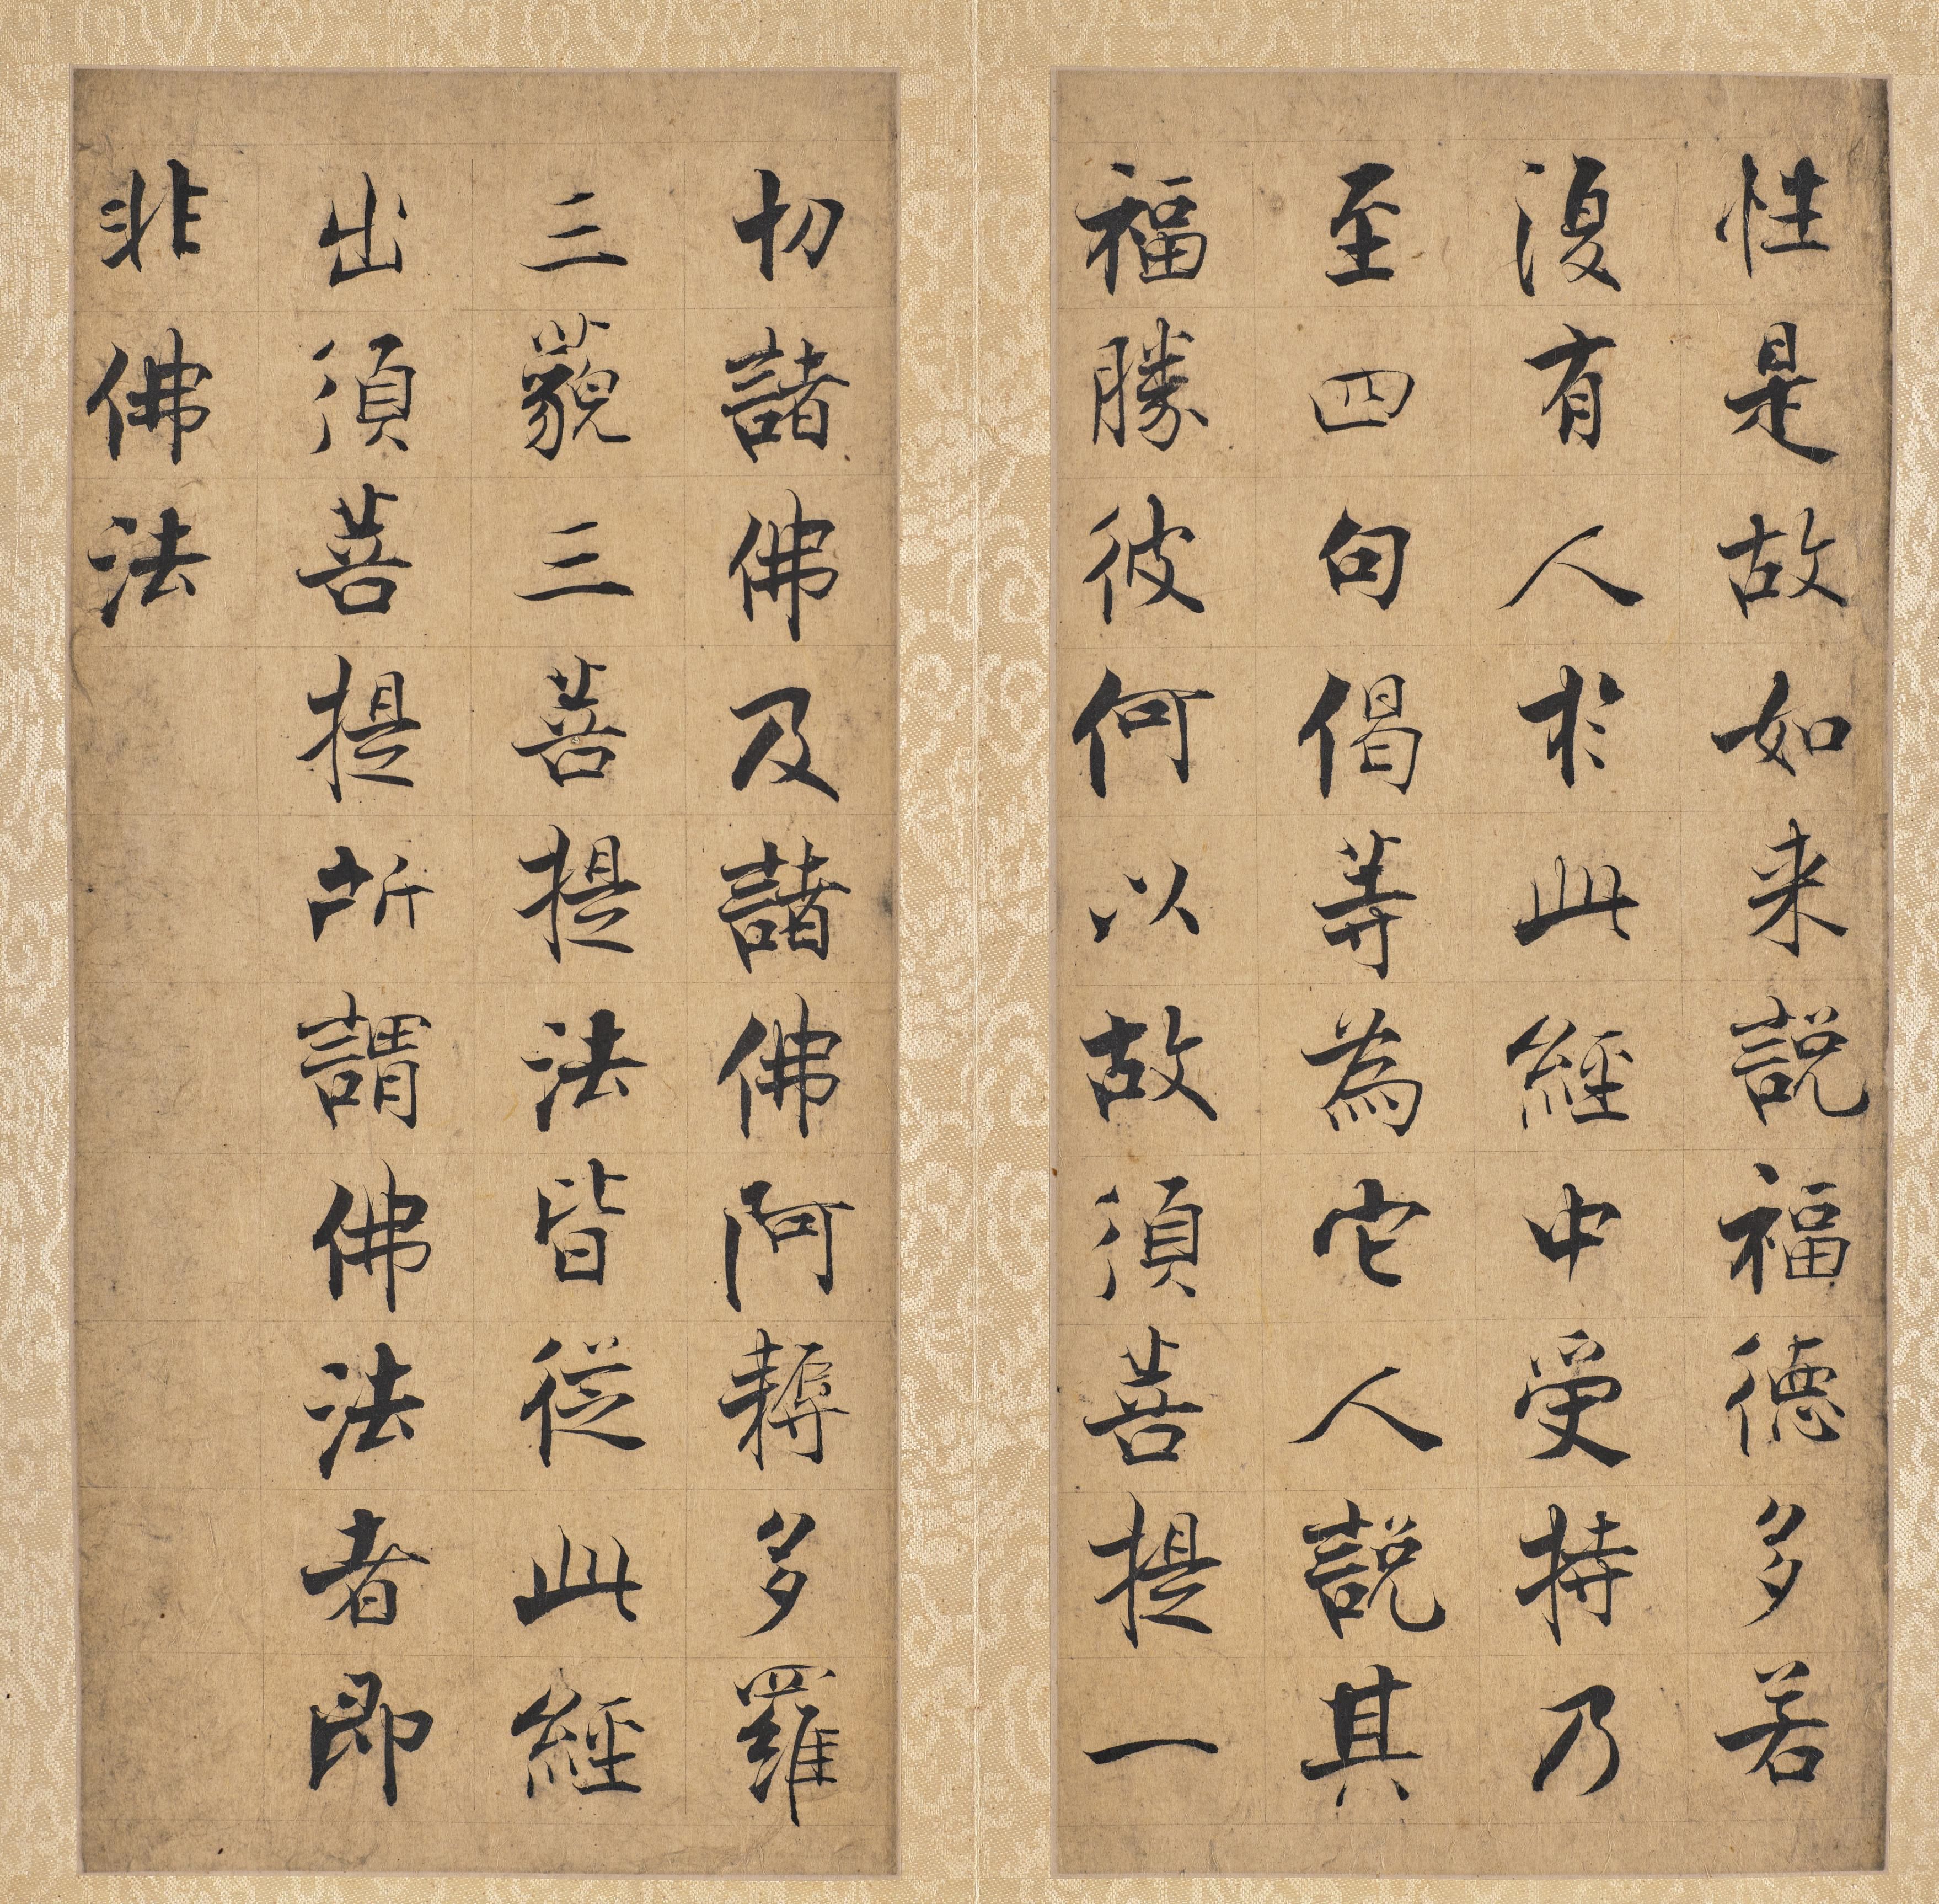 性是故如来説福德多若
復有人於此經中受持乃
至四句偈等為它人説其
福勝彼何以故須菩提一
切諸佛及諸佛阿耨多羅
三藐三菩提法皆從此經
出須菩提所謂佛法者即
非佛法